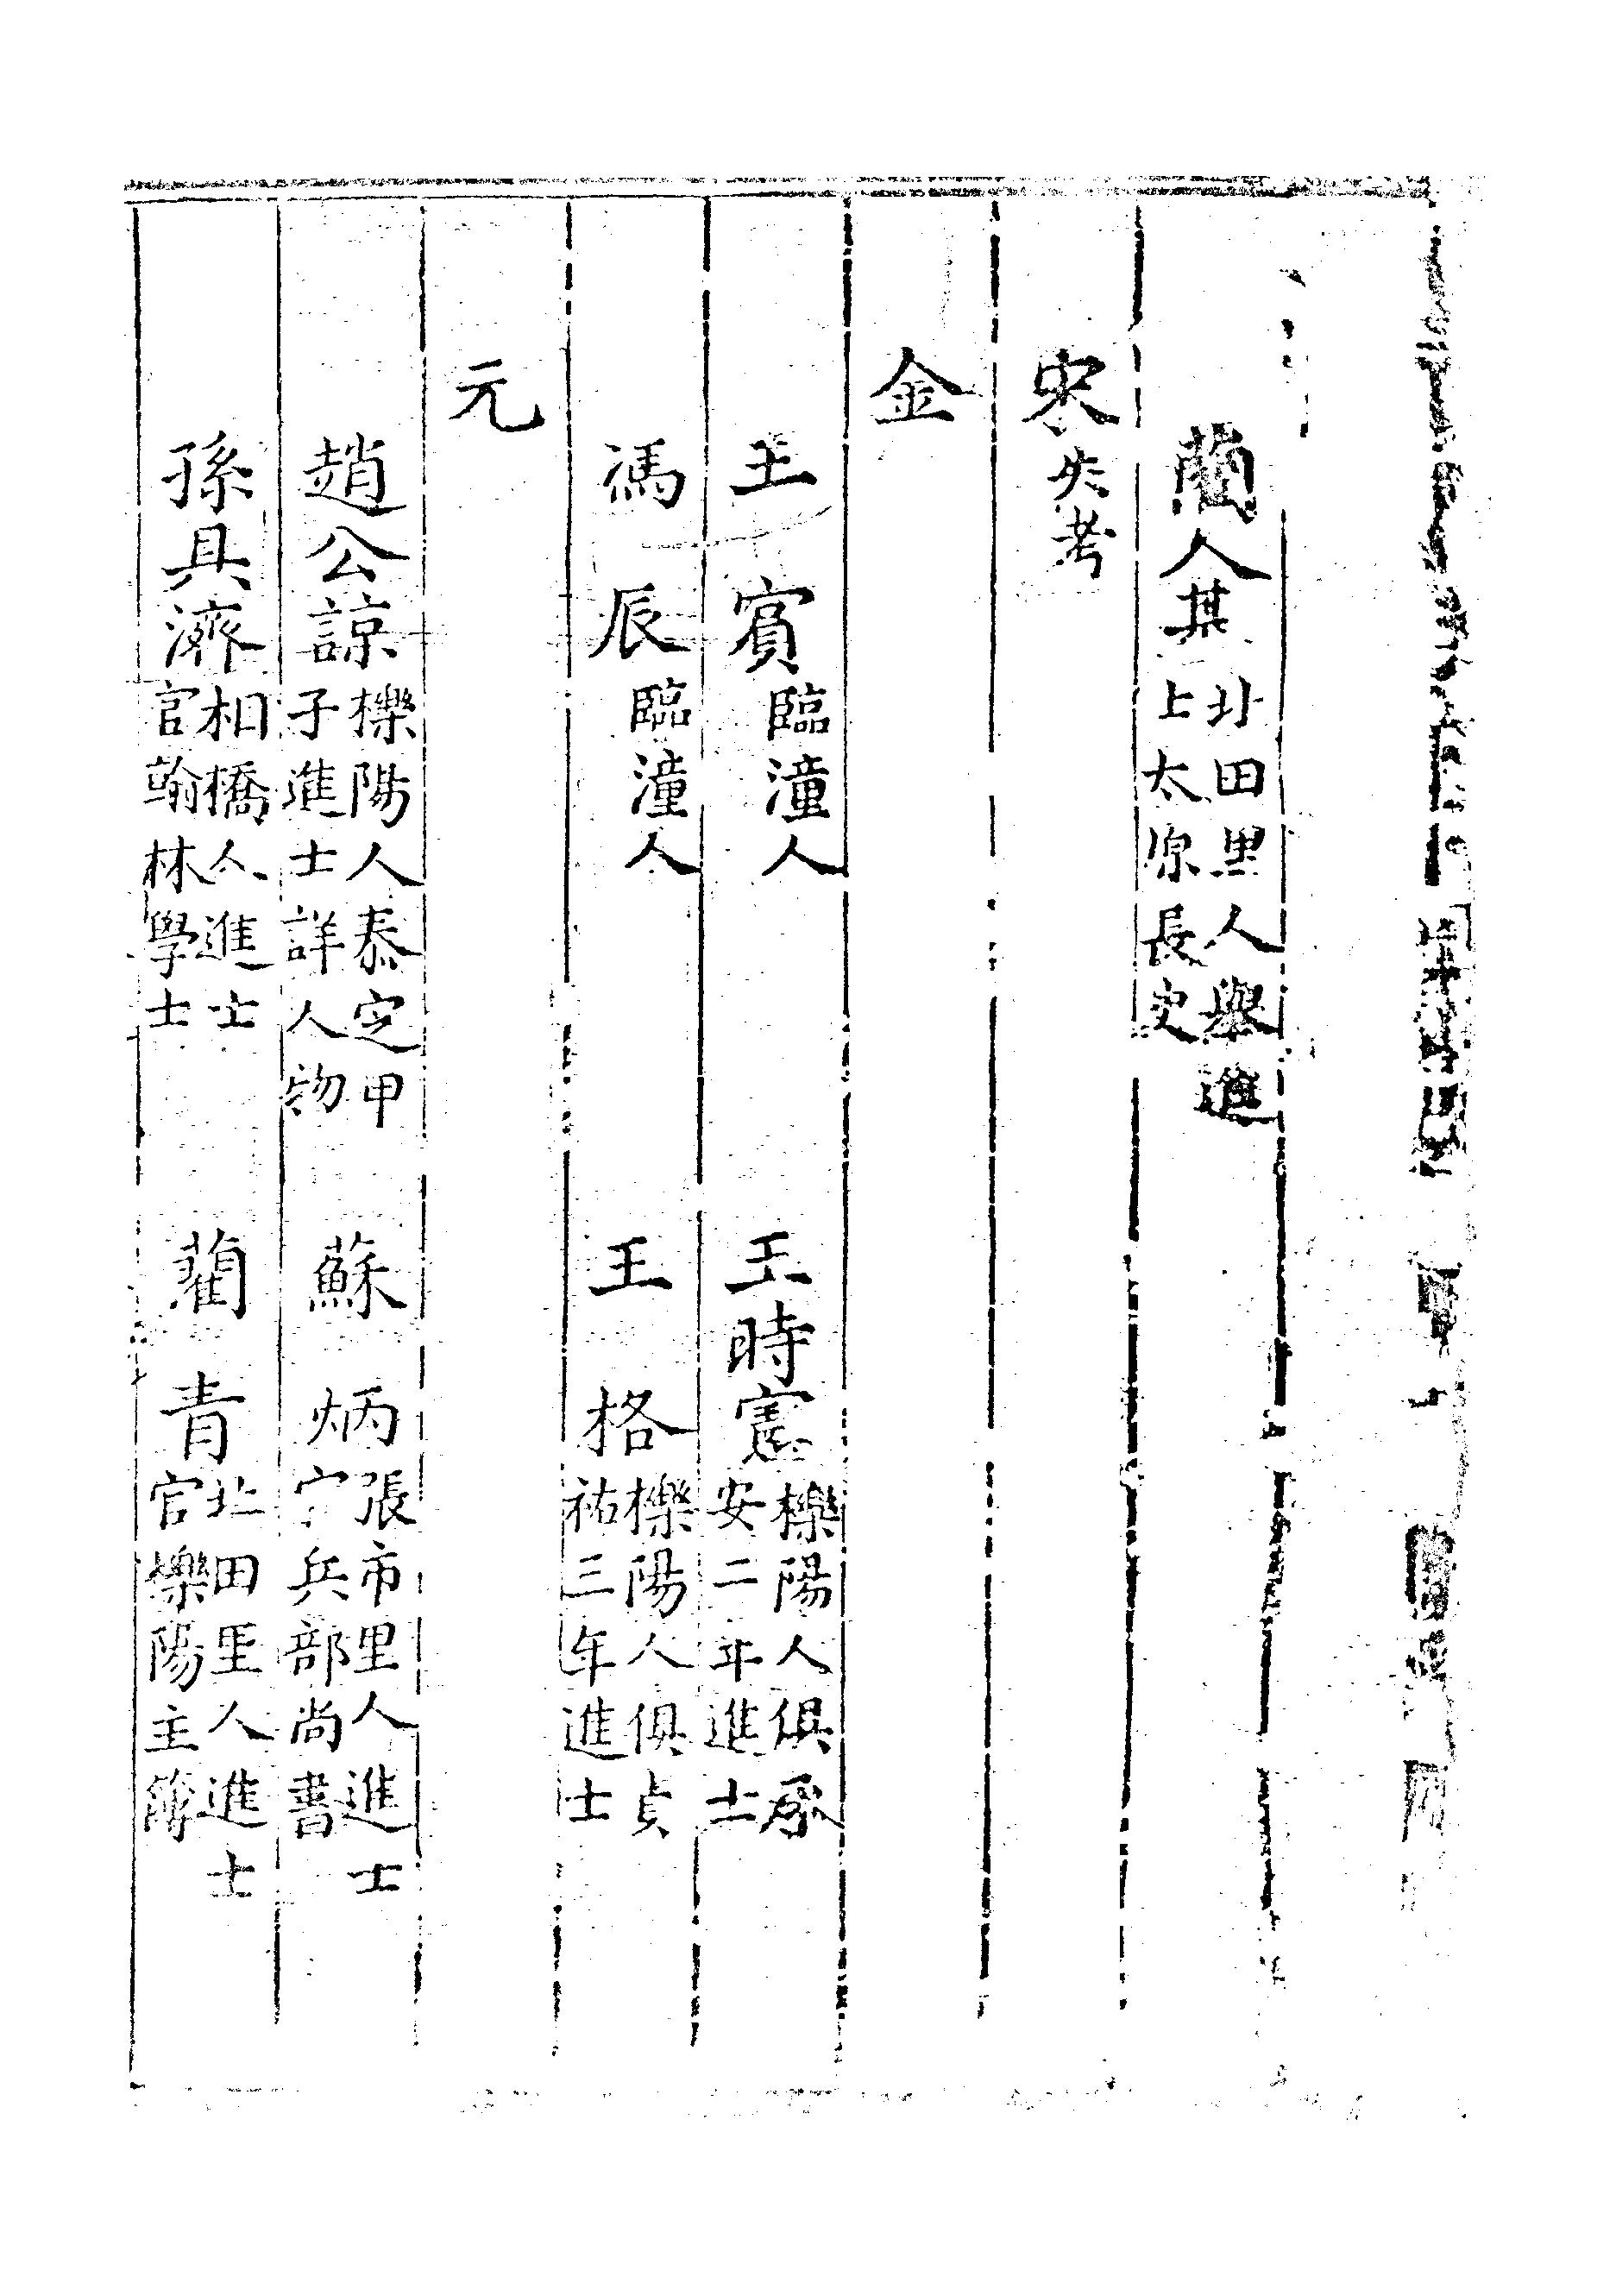 藺人其北田里人舉進上太原長史
宋失考
金
王賓臨潼人 王時憲櫟陽人俱承安二年進士
馮辰臨潼人 王格櫟陽人俱貞祐三年進士
元
趙公諒櫟陽人泰定甲子進士詳人物 蘇炳張市里人進士官兵部尚書
孫具濟相橋人進士官翰林學士 藺青北田里人進士官櫟陽主簿